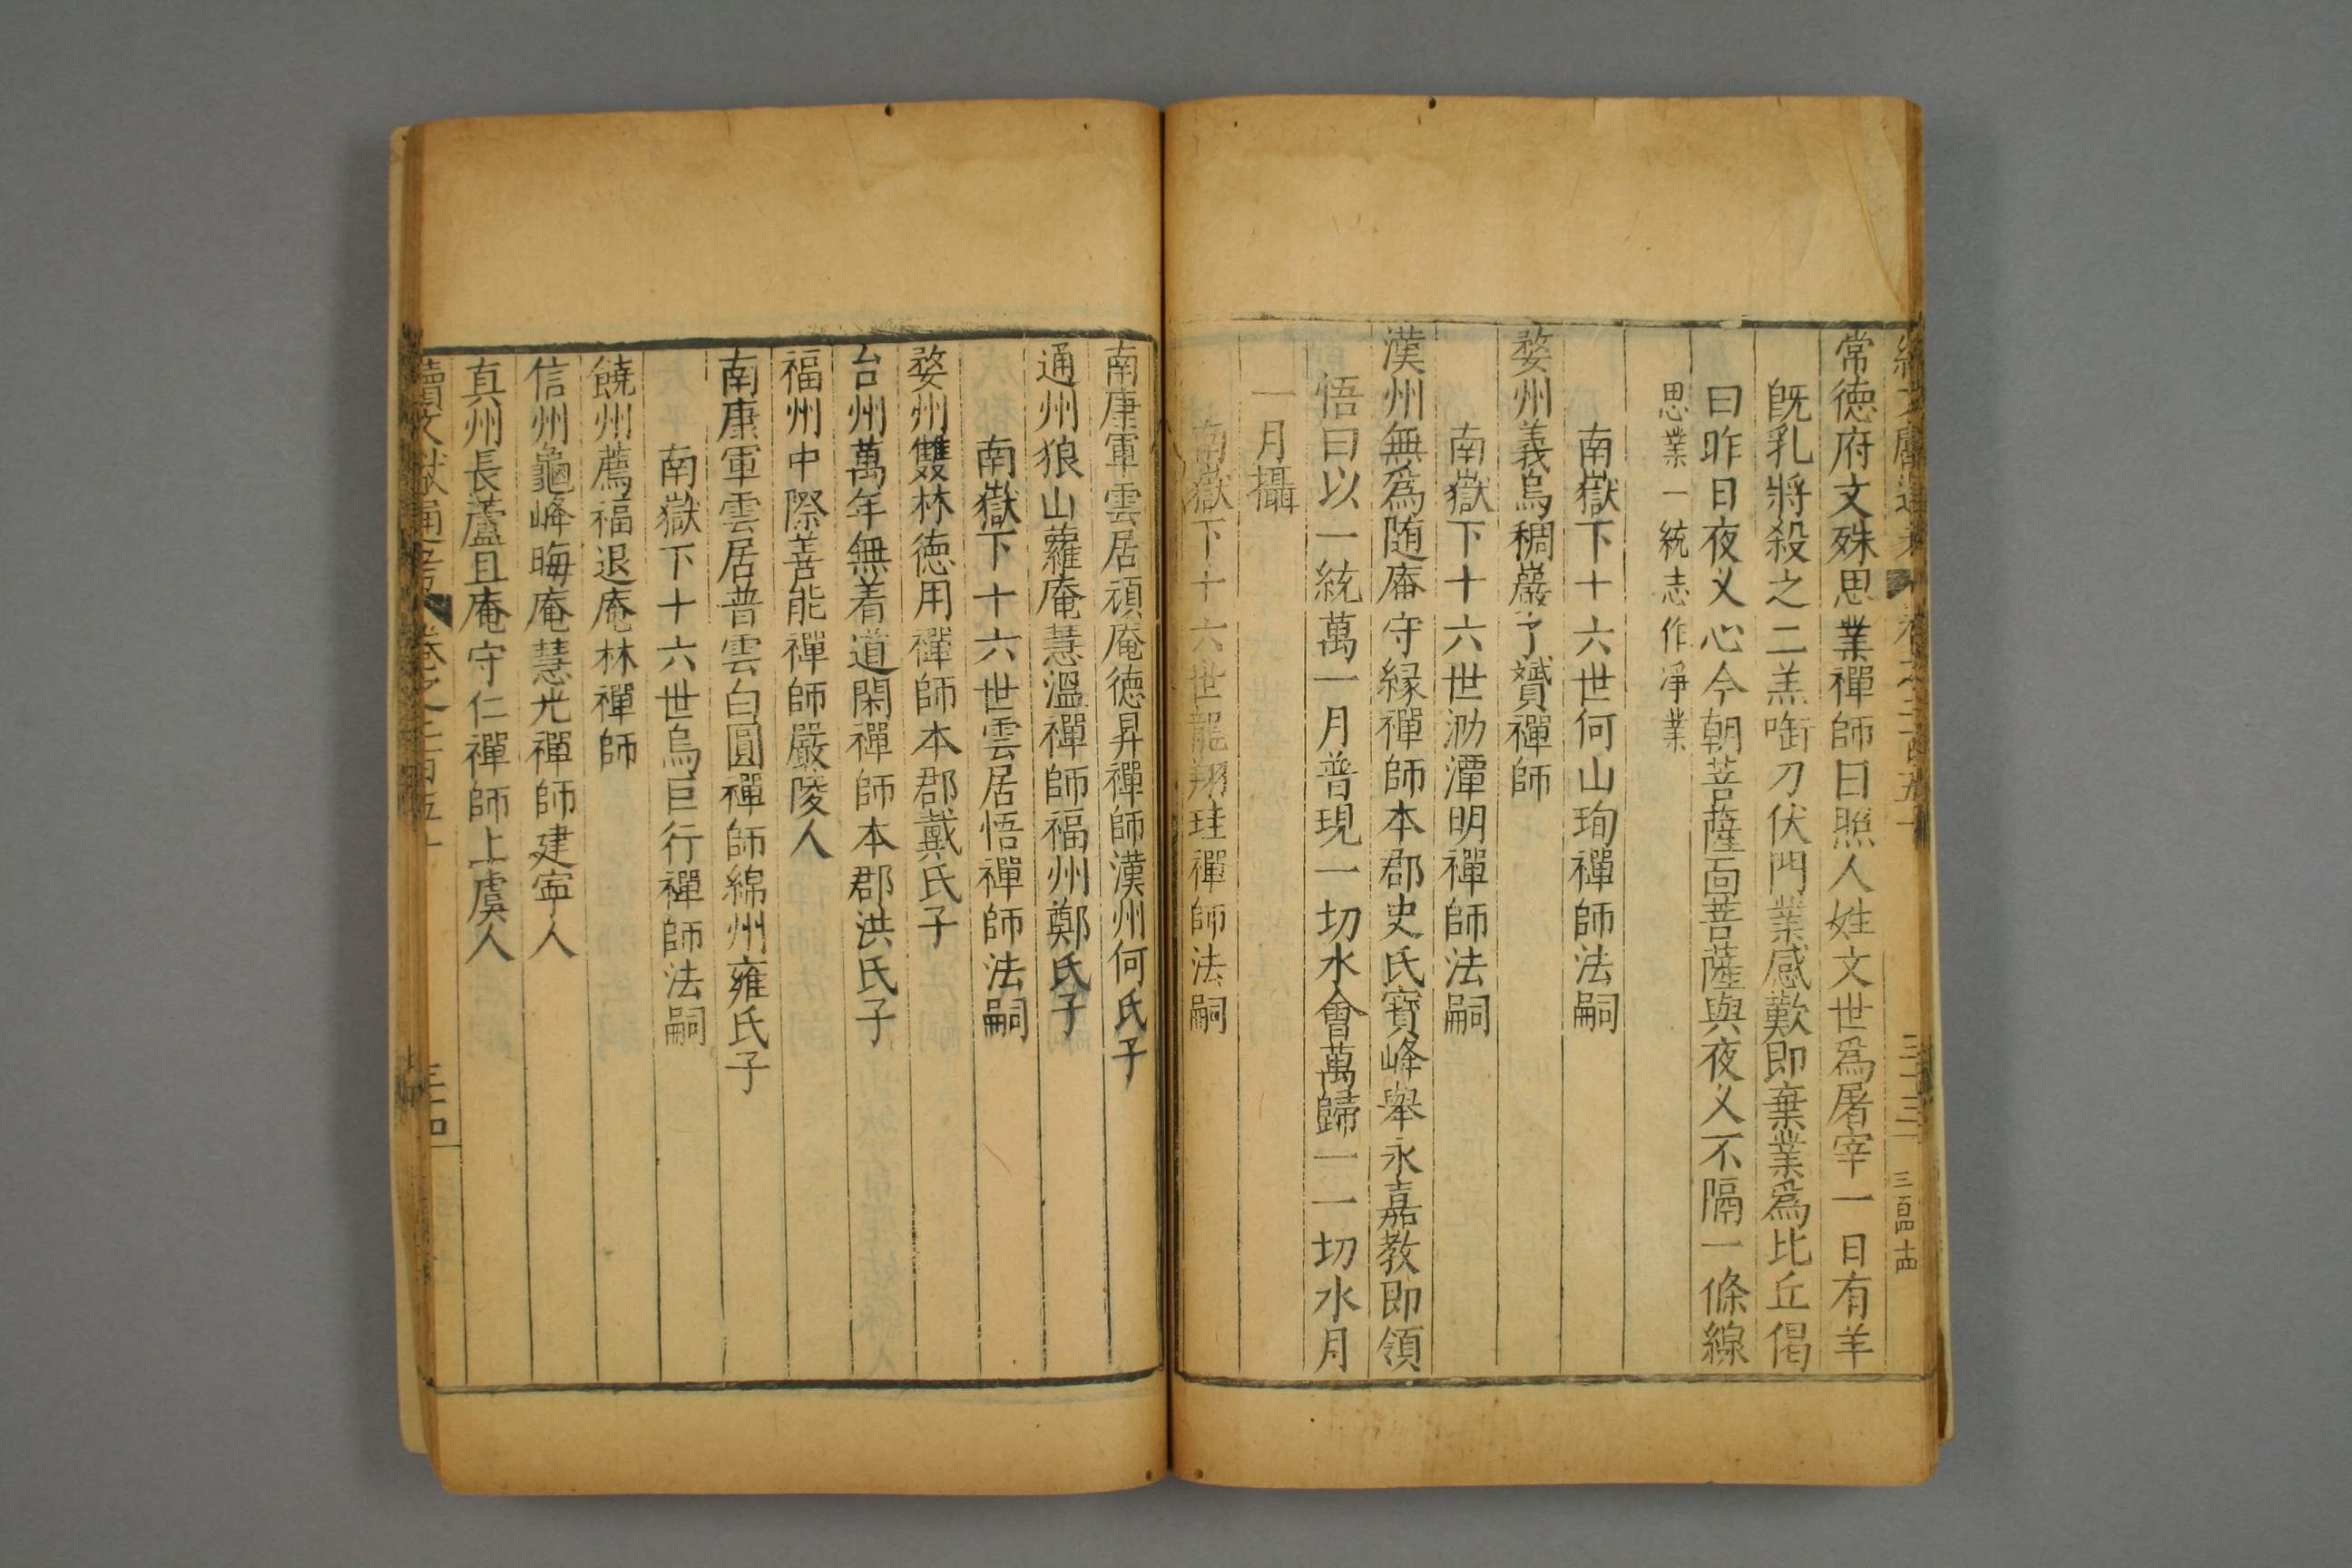 常徳府文殊思業禪師曰照人姓文世爲屠宰一日有羊
既乳將殺之二羔啣刀伏門業感歎即棄業爲比丘偈
曰昨日夜义心今朝菩薩面菩薩與夜义不隔一條線
思業一統志作淨業
南嶽下十六世何山珣禪師法嗣
婺州義烏稠巖了贇禪師
南嶽下十六世泐潭明禪師法嗣
漢州無爲随庵守緣禪師本郡史氏寳峰舉永嘉教即領
悟曰以一統萬一月普現一切水會萬歸一一切水月
一月攝
南嶽下十六世龍翔珪禪師法嗣
南康軍雲居頑庵徳昇禪師漢州何氏子
通州狼山蘿庵慧溫禪師福州鄭氏子
南嶽下十六世雲居悟禪師法嗣
婺州雙林徳用禪師本郡戴氏子
台州萬年無着道閑禪師本郡洪氏子
福州中際善能禪師嚴陵人
南康軍雲居普雲自圓禪師綿州雍氏子
南嶽下十六世烏巨行禪師法嗣
饒州薦福退庵林禪師
信州龜峰晦庵慧光禪師建寧人
真州長蘆且庵守仁禪師上虞人
續文獻通考 卷之二百五十